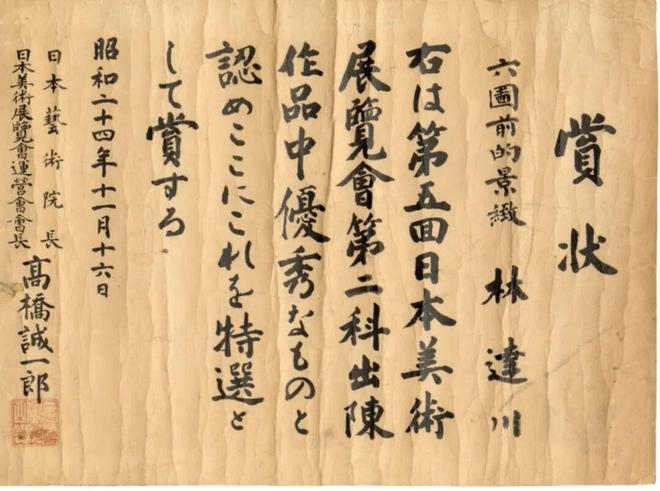 賞状
六圖前的景緻 林達川
右は第五回日本美術
展覽會第二科出陳
作品中優秀なものと
認めここにこれを特選と
して賞する
昭和二十四年十一月十六日
日本藝術院長
日本美術展覽會運営會會長
高橋誠一郎